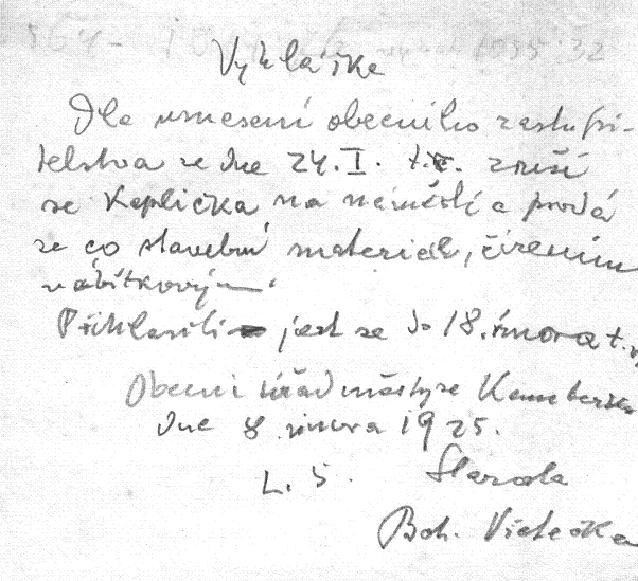 Vyhláška
Dle usnesení obecního zastupi-
telstva ze dne 24. I. t.r. zruší
se Kaplička na náměstí a prodá
se co stavební materiál, čízením
nabítkovým
Přihlásiti jest se do 18. února t. r.
Obecní úřad městyse Kamberka
dne 8 února 1925.
L. S. Starosta
Boh.